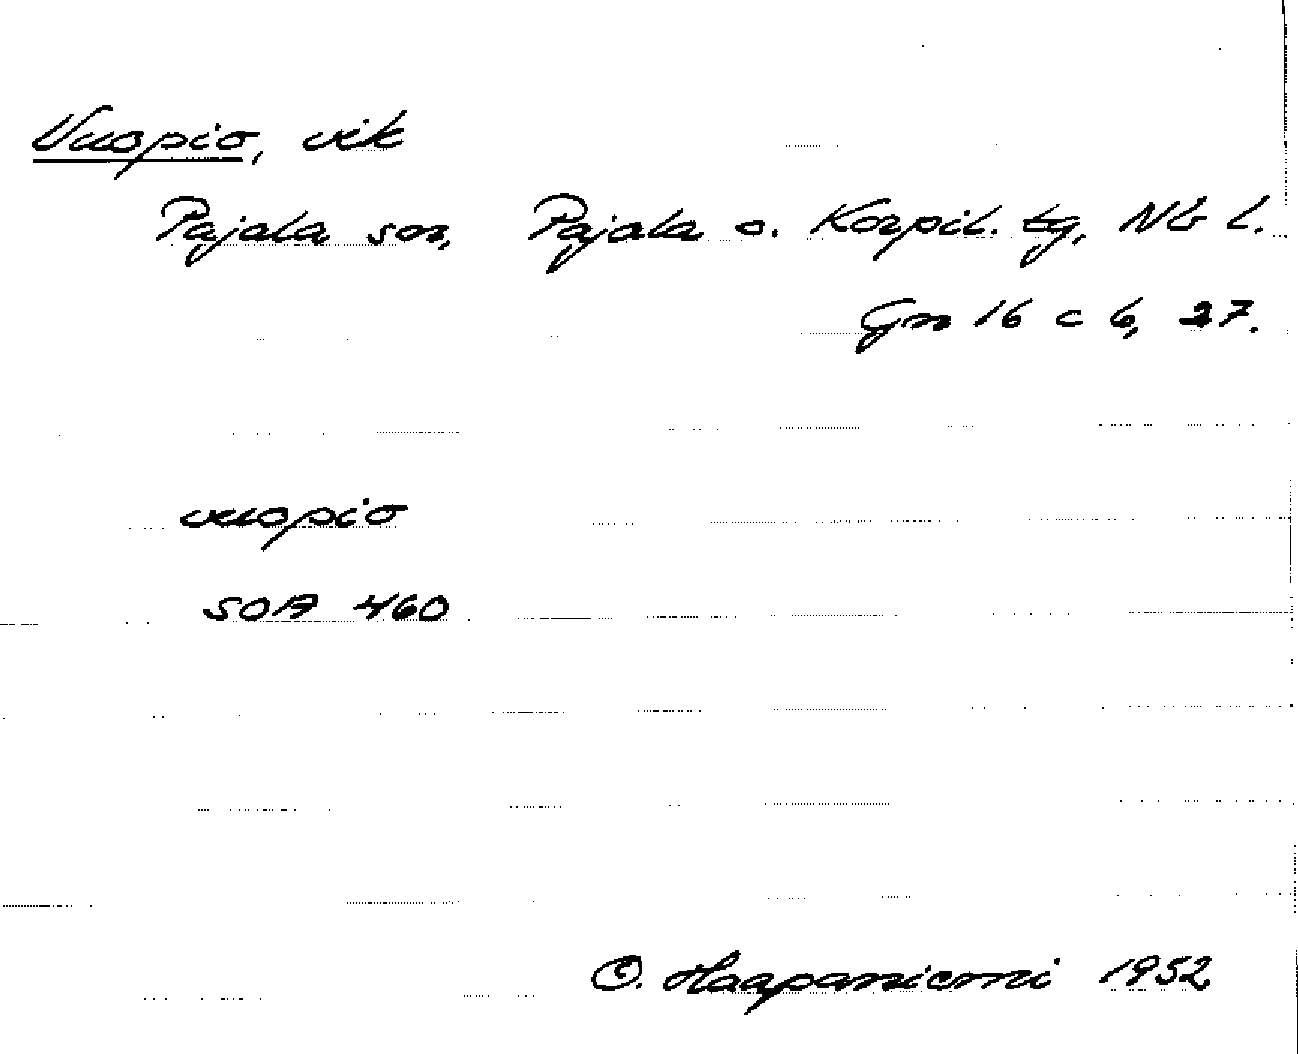 Vuopio, vik
Pajala sn, Pajala o. Korpil. tg, Nb l.
Gn 16 c b, 27.
vuopio
SOA 460
O. Haapaniemi 1952